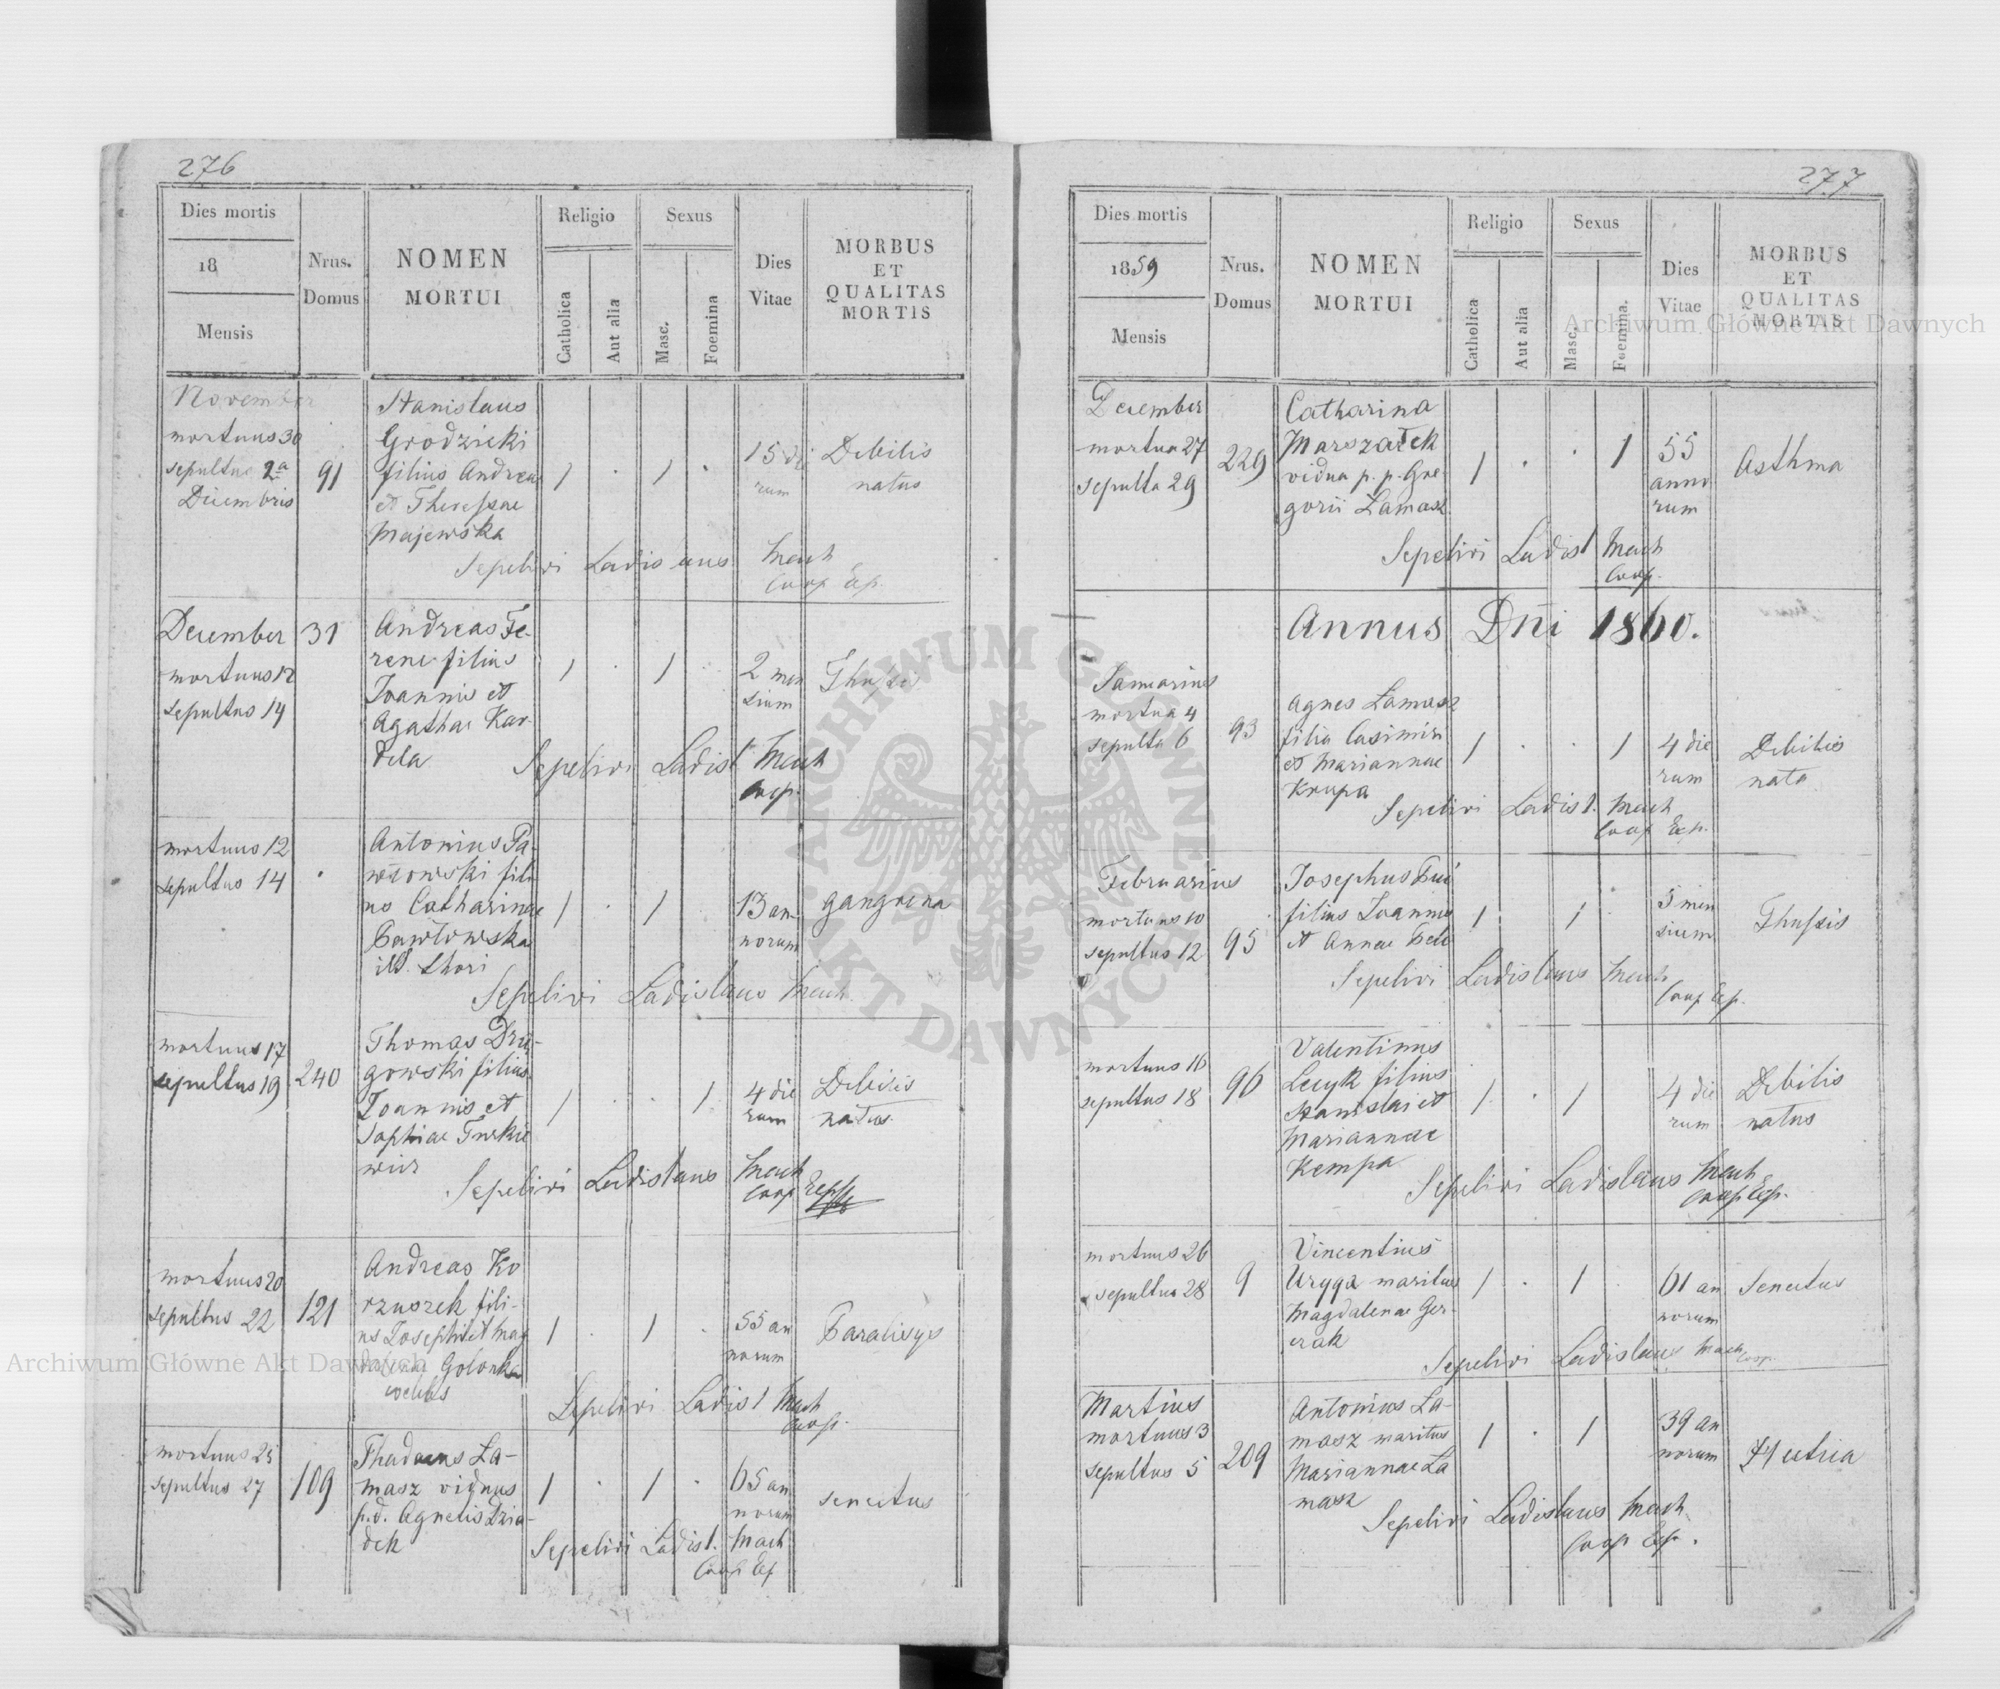 276
Dies mortis
18
Mensis
Nrus.
Domus
NOMEN
MORTUI
Religio
Catholica
Aut alia
Sexus
Masc.
Foemina
Dies
Vitae
MORBUS
ET
QUALITAS
MORTIS
November
mortuus 30
sepultus 2a
Decembris
91
Stanislaus
Grodzicki
filius Andreae
et Theressae
Majewska
1 . 1 .
15 die
rum
Debilis
natus
Sepelivi Ladislaus Mach
Coop Exp.
December
mortuus 12
sepultus 14
31
Andreas Fe-
renc filius
Joannis et
Agathae Kar-
dela
1 . 1 .
2 men
sium
Thussis
Sepelivi Ladisl Mach
Coop.
mortuus 12
sepultus 14
.
Antonius Pa-
włowski fili
us Catharinae
Pawłowska
ill. thori
1 . 1
13 an-
norum
gangrena
Sepelivi Ladislaus Mach.
mortuus 17
sepultus 19
240
Thomas
gowski filius
Joannis et
Sophiae Turkie
wicz
1 . . 1
4 die
rum
Debilis
natus
Sepelivi Ladislaus Mach
Coop Exp
mortuus 20
sepultus 22
121
Andreas Ko
rzuszek fili-
us Josephi et Mag
dalenae Golonka
1 . 1 .
55 an
norum
Paralisys
Sepelivi Ladisl Mach
Coop.
mortuus 25
sepultus 27
109
Thadaeus La-
masz viduus
p.d. Agnetis Dzia-
dek
1 . 1 .
65 an
norum
senectus
Sepelivi Ladisl. Mach
Coop Exp
277
Dies mortis
1859
Mensis
Nrus.
Domus
NOMEN
MORTUI
Religio
Catholica
Aut alia
Sexus
Masc.
Foemina.
Dies
Vitae
MORBUS
ET
QUALITAS
MORTIS
December
mortua 27
sepulta 29
229
Catharina
Marszałek
vidua p. p. Gre-
gorii Lamasz
1 . . 1
55
anno
rum
Asthma
Sepelivi Ladisl Mach
Coop.
Annus Dni 1860.
Januarius
mortua 4
sepulta 6
93
Agnes Lamasz
filia Casimiri
et Mariannae
Krupa
1 . . 1
4 die
rum
Debilis
nata
Sepelivi Ladisl. Mach
Coop Exp.
Februarius
mortuus 10
sepultus 12
95
Josephus
filius Joannis
et Annae
1 1
5 men
sium
Thussis
Sepelivi Ladislaus Mach
Coop Exp.
mortuus 16
sepultus 18
96
Valentinus
Lecyk filius
Stanislai et
Mariannae
Kempa
1 . 1
4 die
rum
Debilis
natus
Sepelivi Ladislaus Mach
Coop Exp.
mortuus 26
sepultus 28
9
Vincentius
Uryga maritus
Magdalenae Ger-
czak
1 . 1 .
61 an
norum
Senectus
Sepelivi Ladislaus Mach
Coop.
Martius
mortuus 3
sepultus 5
209
Antonius La-
masz maritus
Mariannae La
masz
1 . 1
39 an
norum
Hectica
Sepelivi Ladislaus Mach
Coop Exp.
Archiwum Główne Akt Dawnych
Archiwum Główne Akt Dawnych
ARCHIWUM GŁÓWNE AKT DAWNYCH